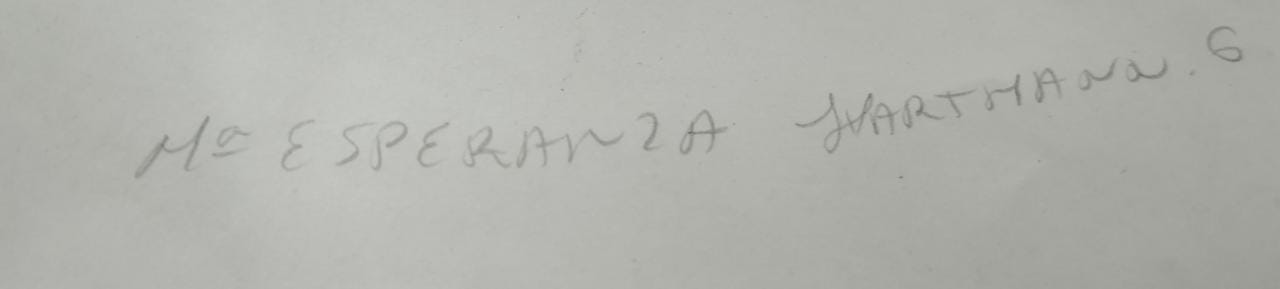 Mª ESPERANZA HARTMANN. G